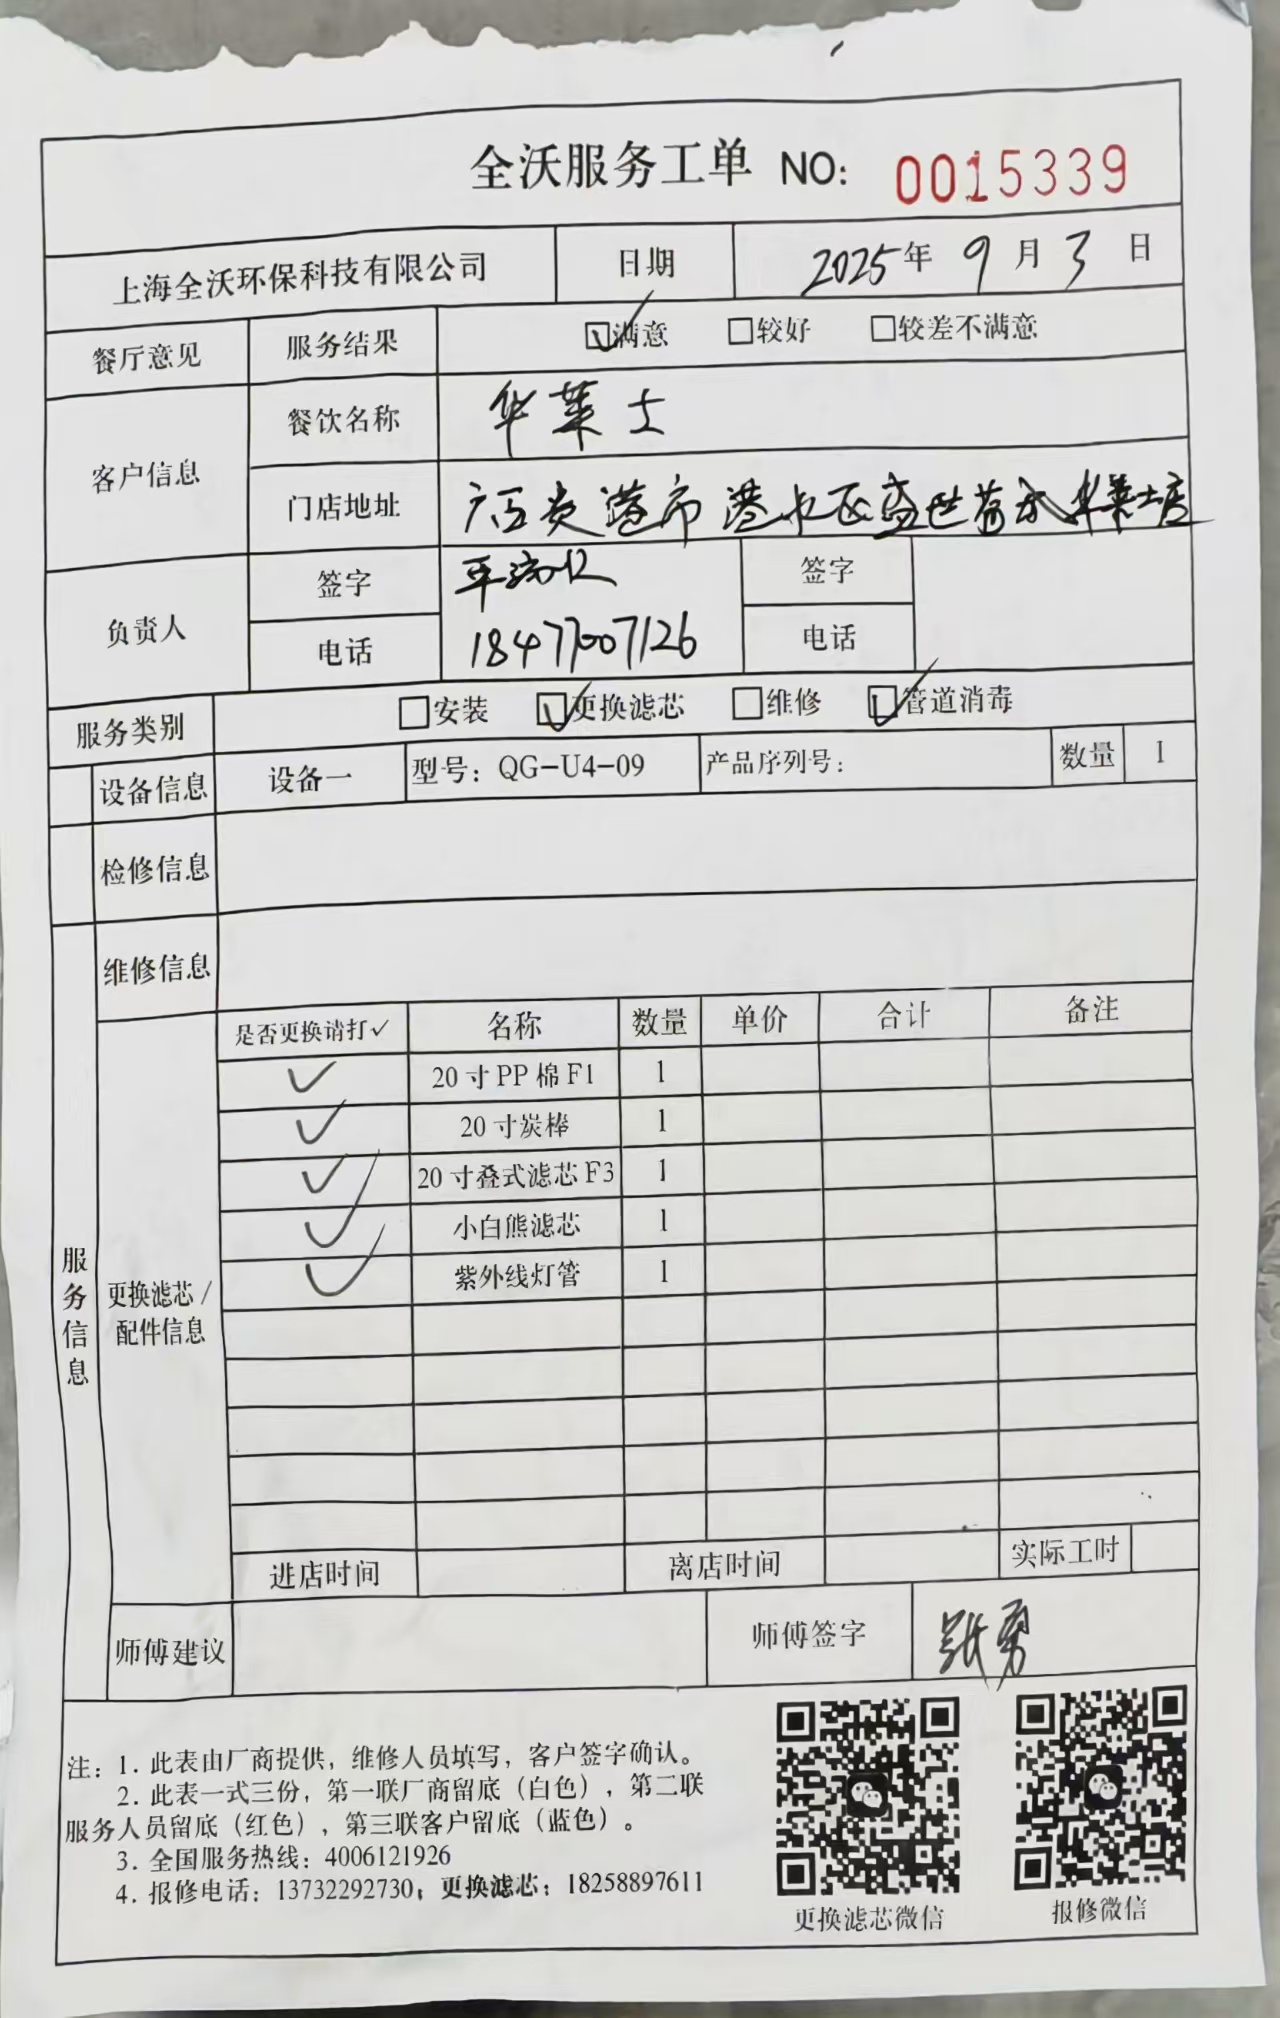 全沃服务工单 NO: 0015339
上海全沃环保科技有限公司 日期 2025年 9月 3日
餐厅意见 服务结果 ☑满意 □较好 □较差不满意
客户信息 餐饮名称 华莱士
门店地址 广西贵港市港北区盛世 华莱士店
负责人 签字 签字
电话 18477007126 电话
服务类别 □安装 ☑更换滤芯 □维修 ☑管道消毒
设备信息 设备一 型号：QG-U4-09 产品序列号： 数量 1
检修信息
服务信息 维修信息
更换滤芯/配件信息
是否更换请打✓ 名称 数量 单价 合计 备注
✓ 20寸PP棉F1 1
✓ 20寸炭棒 1
✓ 20寸叠式滤芯F3 1
✓ 小白熊滤芯 1
✓ 紫外线灯管 1
进店时间 离店时间 实际工时
师傅建议 师傅签字 张勇
注：1. 此表由厂商提供，维修人员填写，客户签字确认。
2. 此表一式三份，第一联厂商留底（白色），第二联
服务人员留底（红色），第三联客户留底（蓝色）。
3. 全国服务热线：4006121926
4. 报修电话：13732292730；更换滤芯：18258897611
更换滤芯微信 报修微信